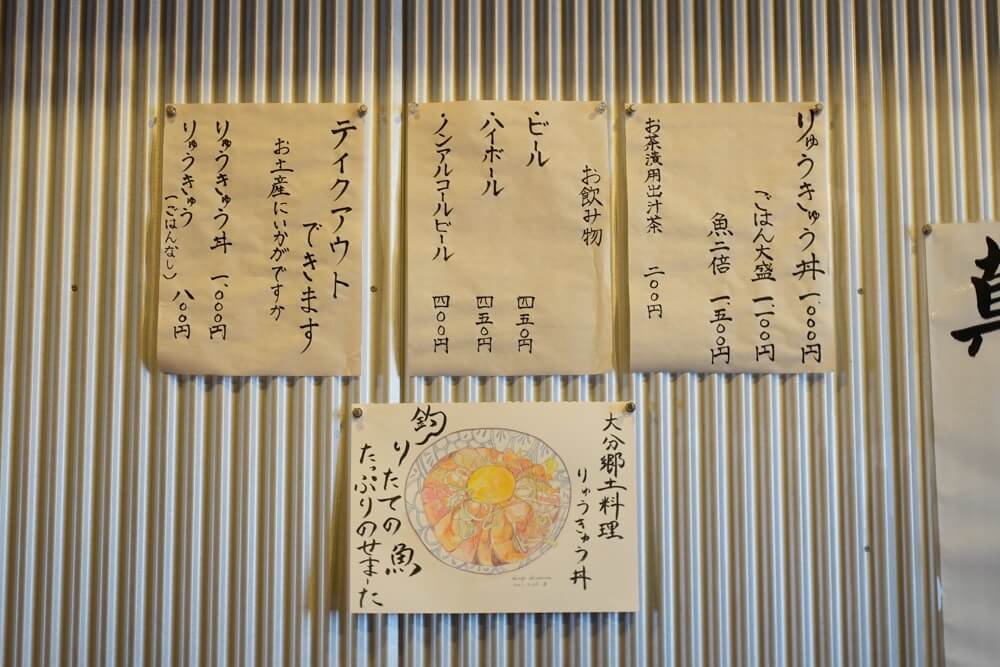 りゅうきゅう丼 一、〇〇〇円
ごはん大盛 一、一〇〇円
魚二倍 一、五〇〇円
お茶漬用出汁茶 二〇〇円
お飲み物
・ビール 四五〇円
・ハイボール 四五〇円
・ノンアルコールビール 四〇〇円
テイクアウト
できます
お土産にいかがですか
りゅうきゅう丼 一、〇〇〇円
りゅうきゅう 八〇〇円
(ごはんなし)
大分郷土料理
りゅうきゅう丼
釣りたての魚
たっぷりのせました
真